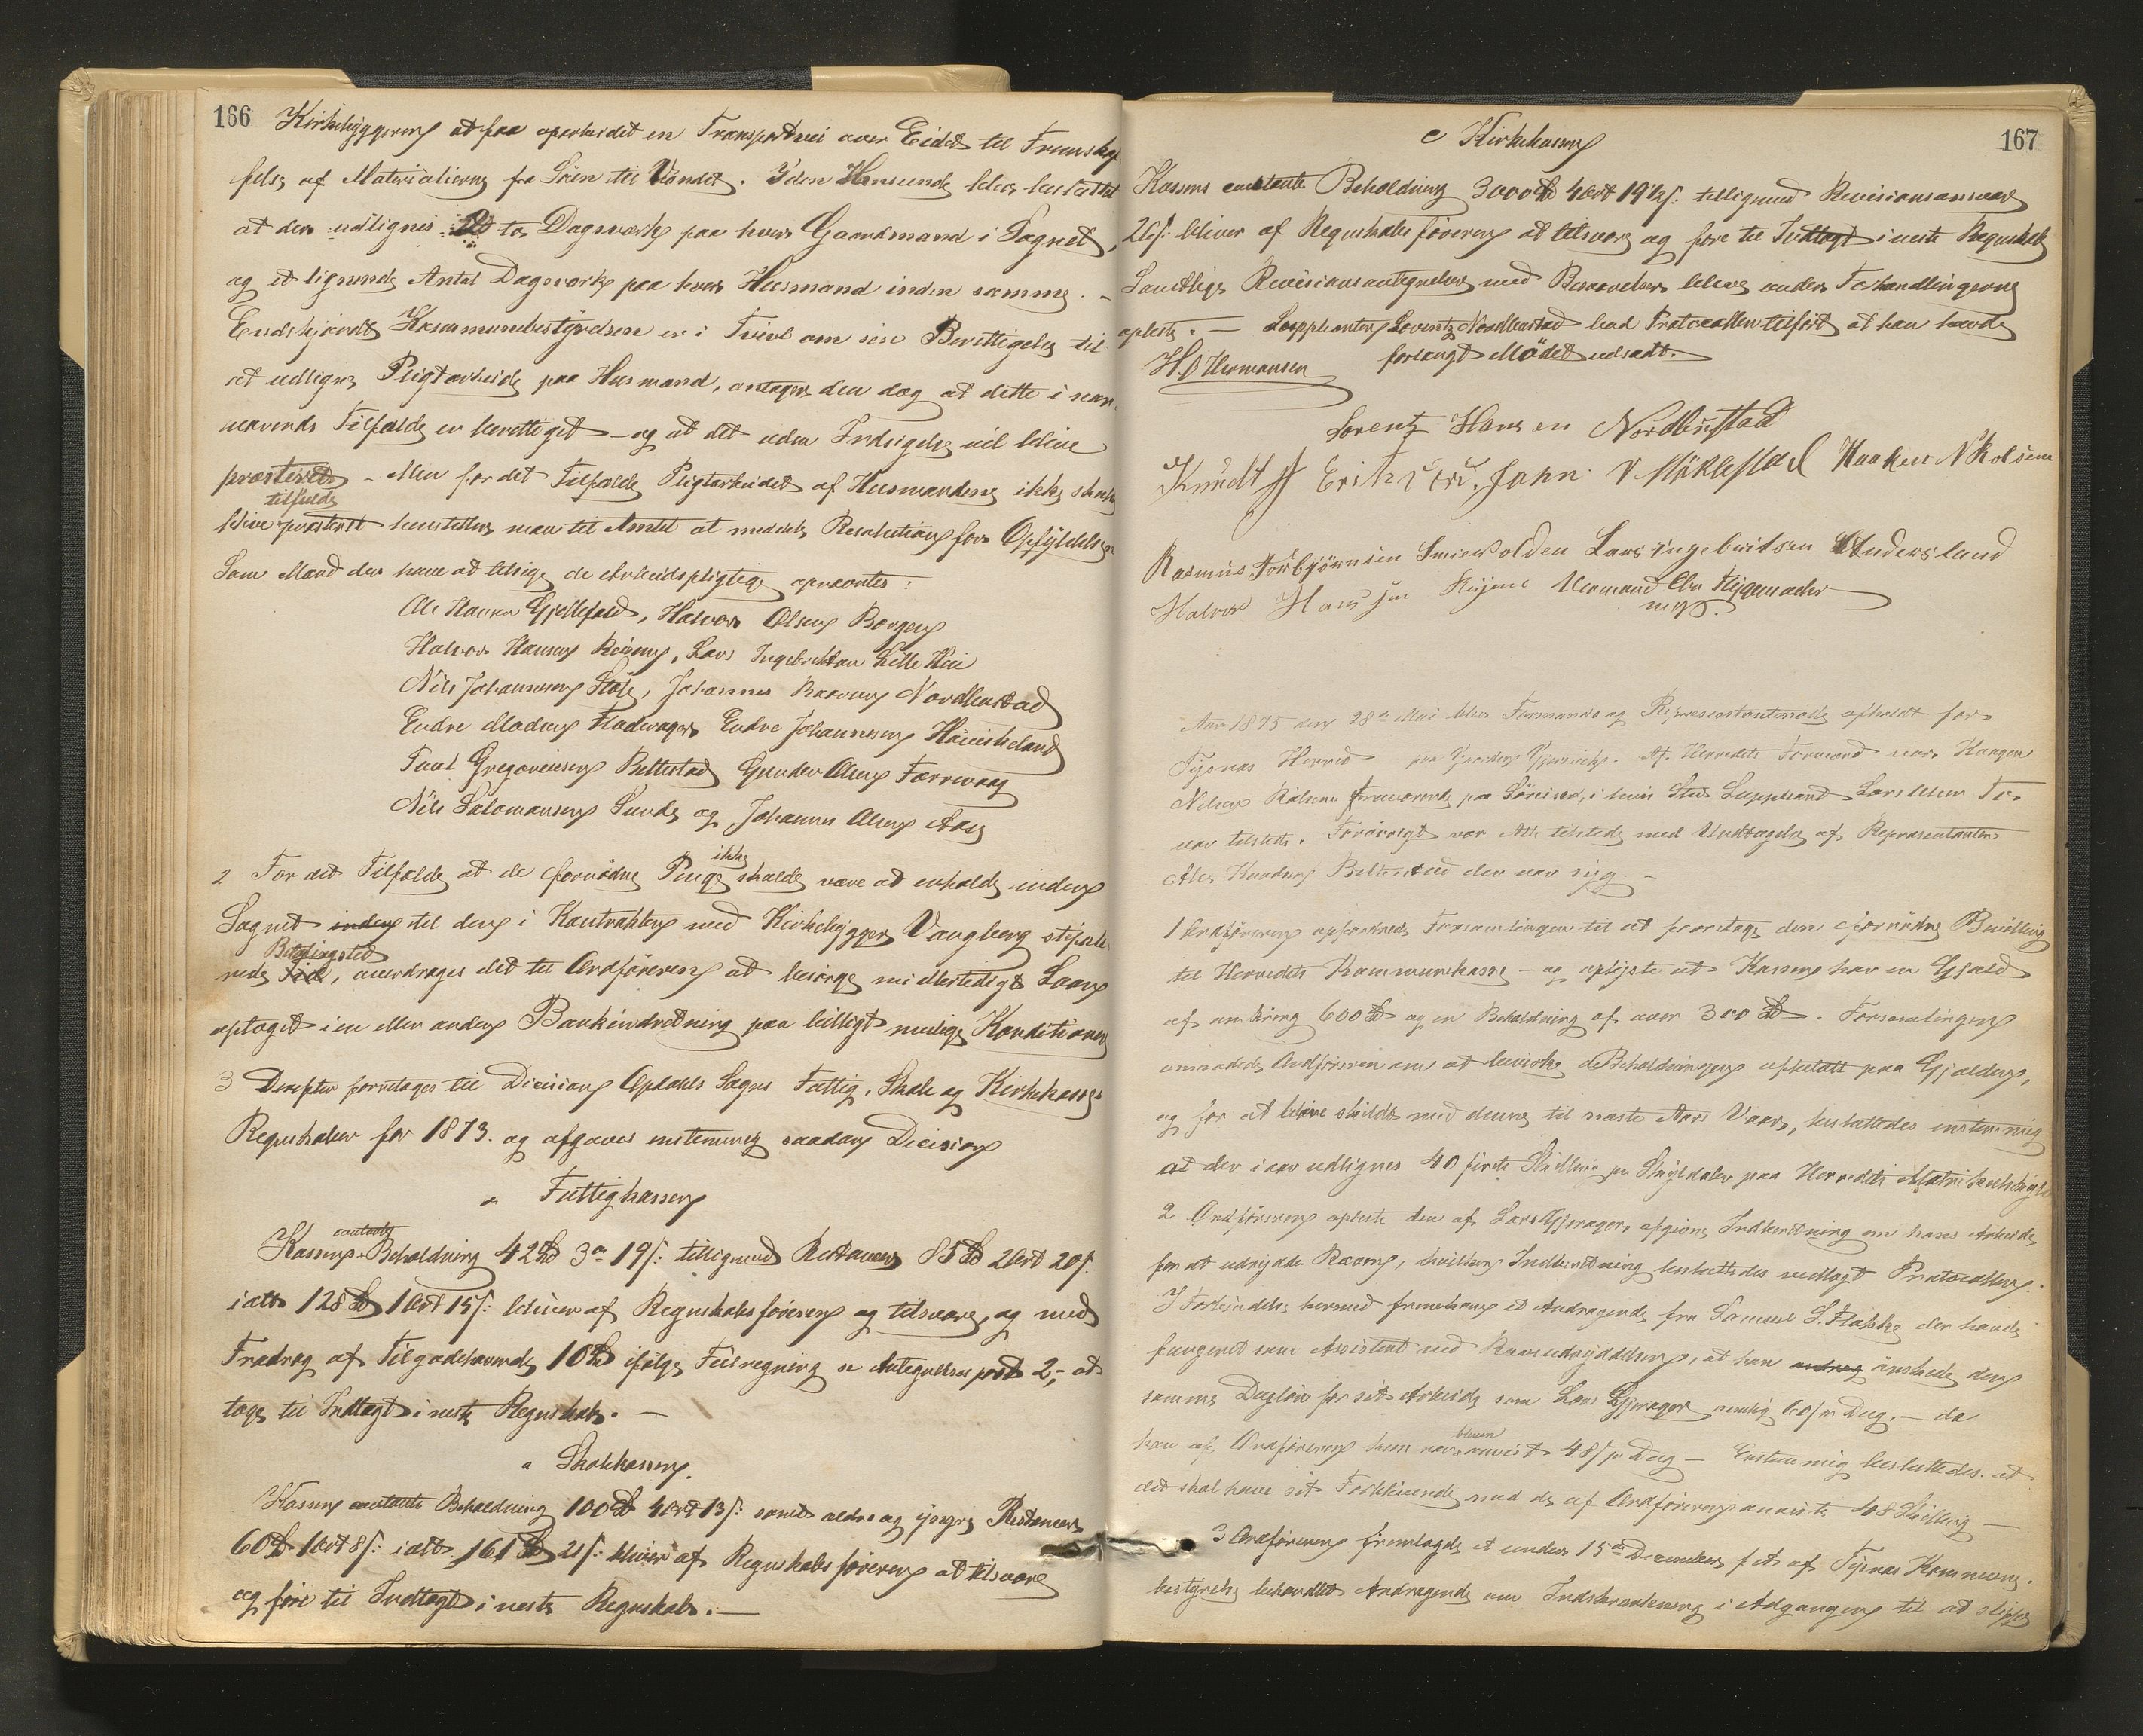 166
Kirkebyggeren at faa oparbeidet en Transportvei over Eidet til Fremskaf-
felse af Materialierne fra Söen til Vandet. I den Henseende blev besluttet
at der udlignes to Dagsværk paa hver Gaardmand i Sognet,
og et lignende Antal Dagsværk paa hver Husmand inden samme. –
Endskjöndt Kommunebestyrelsen er i Tvivl om sin Berettigelse til
at udligne Pligtarbeide paa Husmænd, antager den dog at dette i nær-
værende Tilfælde er berettiget – og at det uden Indsigelse vil blive
præsteret – Men for det Tilfælde Pligtarbeidet af Husmændene ikke skulde
tilfulde
blive præsteret henstilles man til Amtet at meddele Resolution for Opfyldelsen
Som Mænd der have at tilsige de Arbeidspligtige opnævntes:
Ole Hansen Gjellefald, Halvor Olsen Borgen
Halvor Hansen Reisene, Lars Ingebrigtsen Lille Rei
Nils Johannesen Stole, Johannes Nordbustad
Endre Madsen Fladwager, Endre Johannesen Höiviskeland
Gregoriussen Beltestad Gunder Olsen Færevaag
Nils Salomonsen Sunde og Johannes Olsen Aase
2 For det Tilfælde at de fornödne Penge ikke skulde være at erholde inden
Sognet inden til den i Kontrakten med Kirkebygger Vangberg stipule-
Betalingsted
rede Tid, overdrages det til Ordföreren at besörge midlertidigt Laan
optaget i en eller anden Bankindretning paa billigst mulige Konditioner
3 Derefter foretages til Decision Opdals Sogns Fattig, Skole og Kirkekasses
Regnskaber for 1873. og afgaves enstemmig saadan Decision
a Fattigkassen
Kassens contante Beholdning 42 Spd 3 " 19 /: tilligemed Restancer 85 Spd 2 Ort 20 /:
ialt 128 Spd 1 Ort 15 /: bliver af Regnskabsföreren og tilsvare, og med
Fradrag af Tilgodehavende 10 Spd ifölge Feilregning se Antegnelsespost 2, – at
tage til Indtægt i neste Regnskab. –
a Skolekassen.
Kassens contante Beholdning 100 Spd 4 Ort 13 /: samt ældre og yngre Restancer
60 Spd 1 Ort 8 /: ialt 161 Spd 21 /: bliver af Regnskabsföreren at tilsvare
og före til Indtægt i neste Regnskab. –
167
c Kirkekassen
Kassens contante Beholdning 3000 Spd 4 Ort 19 1/2 /: tilligemed Revisionsansvar
20 /: bliver af Regnskabsföreren at tilsvare og före til Indtægt i neste Regnskab
Samtlige Revisionsantegnelser med Besvarelser bleve under Forhandlingerne
oplest. – Suppleanten Lorentz Nordbustad lod Protocollen tilfört at han havde
forlangt Mödet udsatt.
H. O Hermansen
Lorentz Hansen Nordbustad
Knudt Eriksen. John V Möklestad Haaken N Kolsöen
Rasmus Torbjörnsen Lars Ingebritsen Andersland
Halvor Hansen Reisene Hermand Ols Heggemacher
m. p.
Aar 1875 den 28de Mai blev Formands og Representantmöde afholdt for
Tysnes Herred paa Gaarden Gjersvik. Af Herredets Formænd var Haagen
Nilsen Kolsöen fraværende paa Söreiser, i hvis Sted Suppleant Lars
var tilstede. Foröverigt var Alle tilstede med Undtagelse af Representanten
Ole Knudsen Beltestad der var syg. –
1 Ordföreren opfordrede Forsamlingen til at foretage den fornödne Bevilling
til Herredets Kommunekasse – og oplyste at Kassen har en Gjæld
af omkring 600 Spd og en Beholdning af over 300 Spd. Forsamlingen
anmodede Ordföreren om at bevirke Beholdningen afbetalt paa Gjælden,
og for at blive skildt med denne til næste Aars Vaar, besluttedes enstemmig
at der i aar udlignes 40 förti Skilling pr Skylddaler paa Herredets Matrikulskyld
2 Ordföreren opleste den af Lars Gjerager, afgivne Indberetning om hans Arbeide
for at udrydde Ræven, hvilken Indberetning besluttedes vedlagt Protocollen.
I Forbindelse hermed fremkom et Andragende fra Samuel S. Flakke der havde
fungeret som Assistent ved Ræveudryddelsen, at han andrag önskede den
samme Daglön for sit Arbeide som Lars Gjerager nemlig 60 / pr Dag. – da
han af Ordföreren kun var bleven anvist 48 / pr Dag – Enstemmig besluttedes at
det skal have sit Forblivende med de af Ordföreren anviste 48 Skilling –
3 Ordföreren fremlagde et under 15de December f. A. af Tysnes Kommune-
bestyrelse behandlet Andragende om Indskrænkning i Adgangen til at slippe